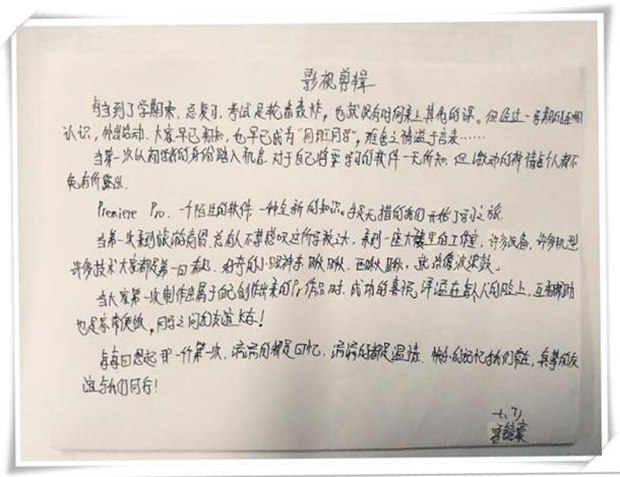 影视剪辑
每当到了学期末,总复习、考试是轮番轰炸,也就没有时间来上其他的课。但经过一学期的互相
认识,外出活动,大家早已相知,也早已成为“同班同学”,难舍之情溢于言表……
当第一次以初学者的身份踏入机房,对于自己将要学习的软件一无所知,但激动的神情每个人都不
免有所露出。
Premiere Pro,一个陌生的软件,一种全新的知识。手足无措的我们开始了学习之旅。
当第一次来到旅游商贸,总有人不禁感叹这所学校之大,来到一座大楼里的工作室,许多设备,许多机型
许多技术大家都是第一回看见,好奇的小眼神东瞅瞅,西瞅瞅,
当大家第一次制作出属于自己创作出来的Pr作品时,成功的喜悦,洋溢在每个人的脸上,互相帮助
也是家常便饭,同学之间的友谊长存!
每每回想起那一件件第一次,满满的都是回忆,满满的都是温情,愉快的记忆与我们常在,真挚的友
谊与我们同行!